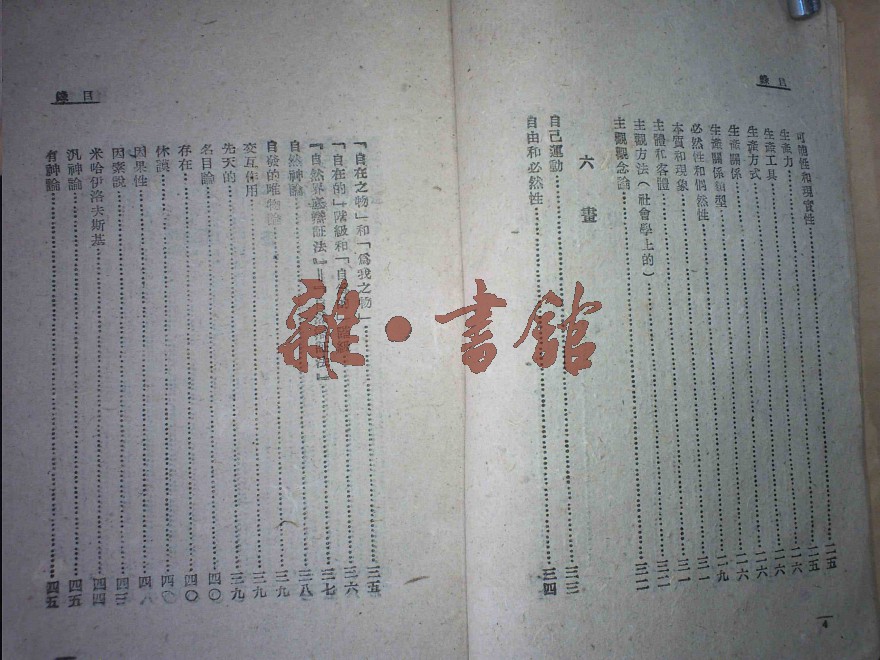 目錄
可能性和現實性……二五
生產力……二六
生產工具……二六
生產方式……二六
生產關係……二六
生產關係類型……二九
必然性和偶然性……三一
本質和現象……三一
主體和客體……三二
主觀方法(社會學上的)……
主觀觀念論……三二
六畫
自己運動……三三
自由和必然性……三四
4
目錄
「自在之物」和「爲我之物」……三五
「自在的」階級和「自……三六
『自然界底辯証法』……三七
自然神論……三八
自發的唯物論……三九
交互作用……三九
先天的……三九
名目論……四〇
存在……四〇
休謨……四〇
因果性……
因素說……四三
米哈伊洛夫斯基……四四
汎神論……四五
有神論……四五
雜·書館